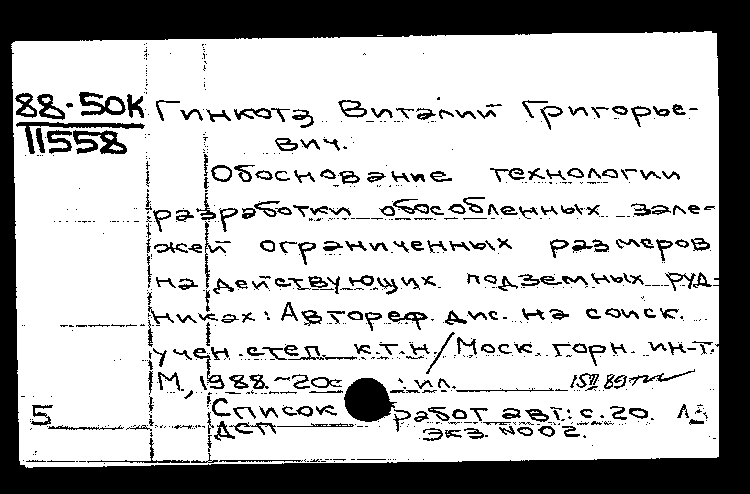 88-50К
11558
Гинкота Виталий Григорье-
вич.
Обоснование технологии
разработки обособленных зале-
жей ограниченных размеров
на действующих подземных руд-
никах: Автореф. дис. на соиск.
учен. степ к.т.н/Моск. горн. ин-т.
М, 1988.-20с : ил.
5 Список работ авт: с.20.
ДСП Экз. N002.